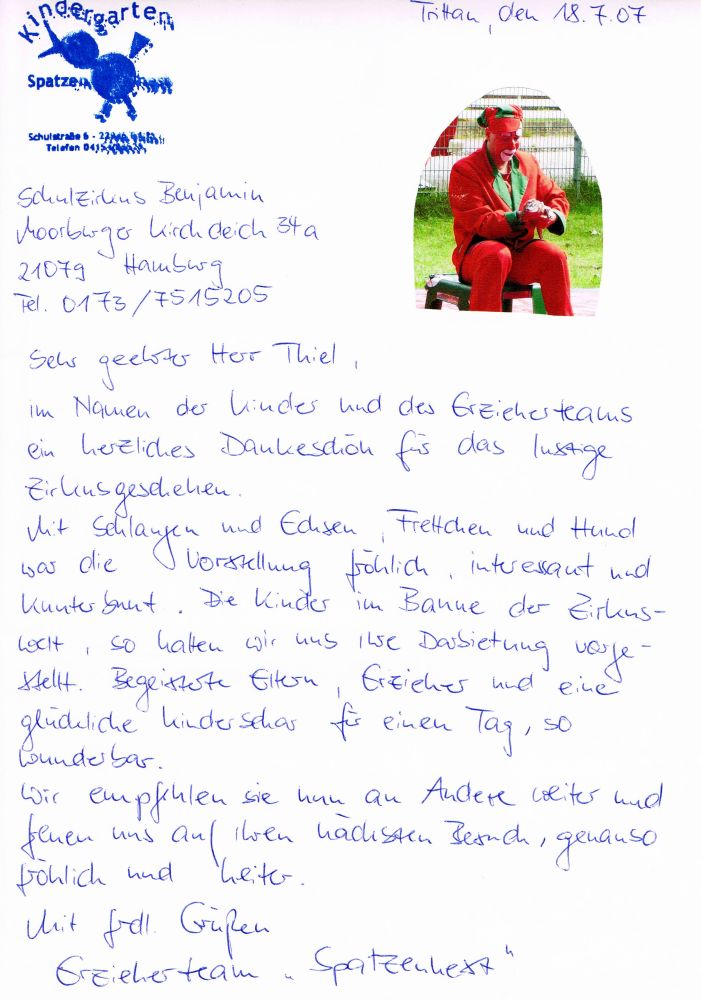 Kindergarten
Trittau, den 18.7.07
Spatzennest
Schulstraße 6 - 22946
Telefon 0415
Schulzirkus Benjamin
Moorburger Kirchdeich 34a
21079 Hamburg
Tel. 0173/7515205
Sehr geehrter Herr Thiel,
im Namen der Kinder und des Erzieherteams
ein herzliches Dankeschön für das lustige
Zirkusgeschehen.
Mit Schlangen und Echsen, Frettchen und Hund
war die Vorstellung fröhlich, interessant und
kunterbunt. Die Kinder im Banne der Zirkus-
welt, so hatten wir uns ihre Darbietung vorge-
stellt. Begeisterte Eltern, Erzieher und eine
glückliche Kinderschar für einen Tag, so
wunderbar.
Wir empfehlen sie nun an Andere weiter und
freuen uns auf ihren nächsten Besuch, genauso
fröhlich und heiter.
Mit frdl. Grüßen
Erzieherteam „Spatzennest"